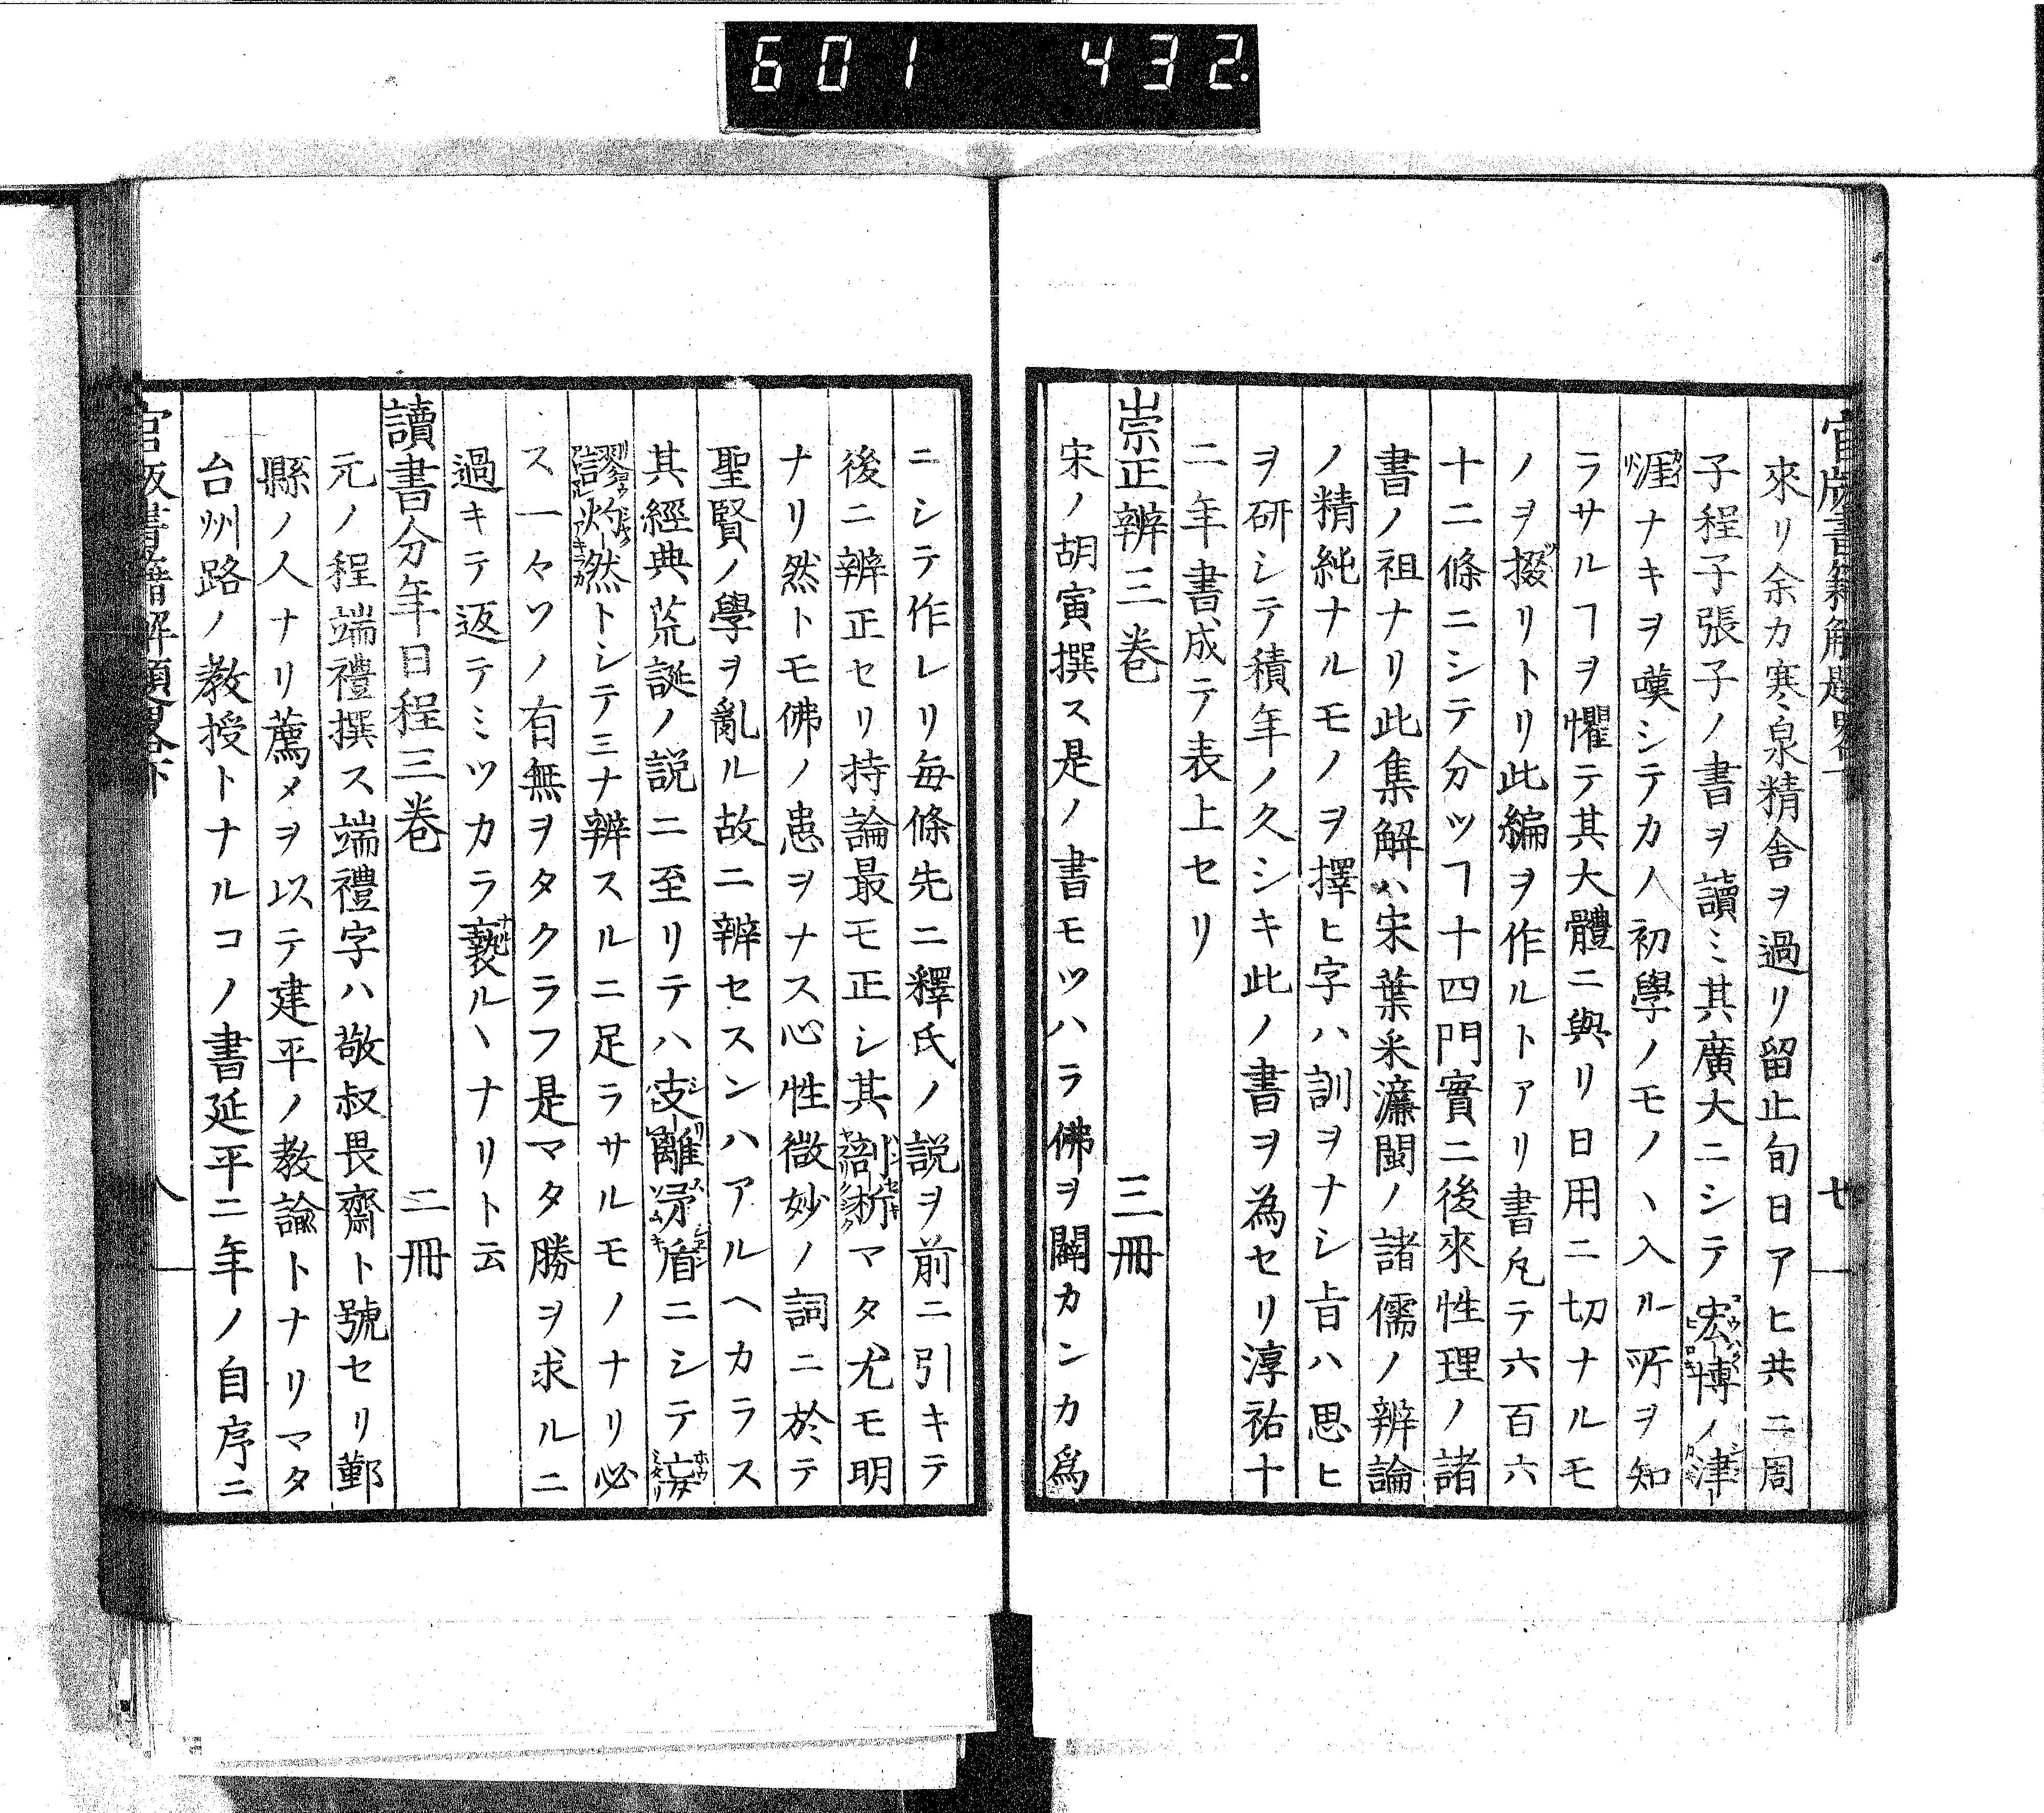 601 432.
來リ余カ寒泉精舎ヲ過リ留止旬日アヒ共ニ周
子程子張子ノ書ヲ讀ミ其廣大ニシテ宏博ノ津
涯ナキヲ嘆シテカノ初學ノモノヽ入ル所ヲ知
ラサルヿヲ懼テ其大體ニ與リ日用ニ切ナルモ
ノヲ掇リトリ此編ヲ作ルトアリ書凡テ六百六
十二條ニシテ分ツヿ十四門實ニ後來性理ノ諸
書ノ祖ナリ此集解ハ宋葉采濂閩ノ諸儒ノ辨論
ノ精純ナルモノヲ擇ヒ字ハ訓ヲナシ旨ハ思ヒ
ヲ研シテ積年ノ久シキ此ノ書ヲ為セリ淳祐十
二年書成テ表上セリ
崇正辨三巻 三冊
宋ノ胡寅撰ス是ノ書モツハラ佛ヲ闢カンカ爲
ニシテ作レリ毎條先ニ釋氏ノ説ヲ前ニ引キテ
後ニ辨正セリ持論最モ正シ其剖析マタ尤モ明
ナリ然トモ佛ノ患ヲナス心性微妙ノ詞ニ於テ
聖賢ノ學ヲ亂ル故ニ辨セスンハアルヘカラス
其經典荒誕ノ説ニ至リテハ支離矛盾ニシテ妄
謬灼然トシテミナ辨スルニ足ラサルモノナリ必
ス一々ソノ有無ヲタクラフ是マタ勝ヲ求ルニ
過キテ返テミツカラ褻ルヽナリト云
讀書分年日程三巻 二冊
元ノ程端禮撰ス端禮字ハ敬叔畏齋ト號セリ鄞
縣ノ人ナリ薦メヲ以テ建平ノ教諭トナリマタ
台州路ノ教授トナルコノ書延平二年ノ自序ニ